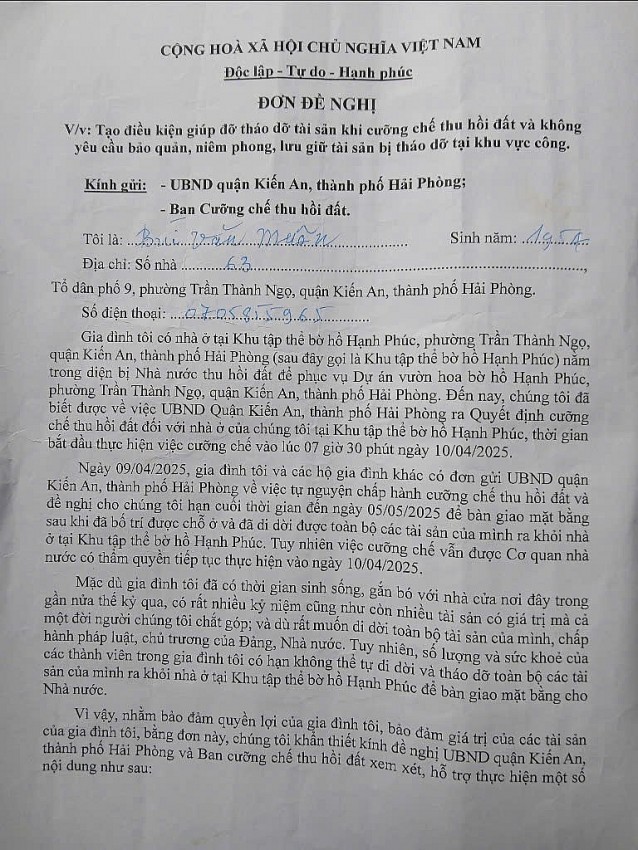 CỘNG HOÀ XÃ HỘI CHỦ NGHĨA VIỆT NAM
Độc lập - Tự do - Hạnh phúc
ĐƠN ĐỀ NGHỊ
V/v: Tạo điều kiện giúp đỡ tháo dỡ tài sản khi cưỡng chế thu hồi đất và không
yêu cầu bảo quản, niêm phong, lưu giữ tài sản bị tháo dỡ tại khu vực công.
Kính gửi: - UBND quận Kiến An, thành phố Hải Phòng;
- Ban Cưỡng chế thu hồi đất.
Tôi là: Bùi Văn Muôn Sinh năm: 1954
Địa chỉ: Số nhà 63
Tổ dân phố 9, phường Trần Thành Ngọ, quận Kiến An, thành phố Hải Phòng.
Số điện thoại: 0705815965
Gia đình tôi có nhà ở tại Khu tập thể bờ hồ Hạnh Phúc, phường Trần Thành Ngọ,
quận Kiến An, thành phố Hải Phòng (sau đây gọi là Khu tập thể bờ hồ Hạnh Phúc) nằm
trong diện bị Nhà nước thu hồi đất để phục vụ Dự án vườn hoa bờ hồ Hạnh Phúc,
phường Trần Thành Ngọ, quận Kiến An, thành phố Hải Phòng. Đến nay, chúng tôi đã
biết được về việc UBND Quận Kiến An, thành phố Hải Phòng ra Quyết định cưỡng
chế thu hồi đất đối với nhà ở của chúng tôi tại Khu tập thể bờ hồ Hạnh Phúc, thời gian
bắt đầu thực hiện việc cưỡng chế vào lúc 07 giờ 30 phút ngày 10/04/2025.
Ngày 09/04/2025, gia đình tôi và các hộ gia đình khác có đơn gửi UBND quận
Kiến An, thành phố Hải Phòng về việc tự nguyện chấp hành cưỡng chế thu hồi đất và
đề nghị cho chúng tôi hạn cuối thời gian đến ngày 05/05/2025 để bàn giao mặt bằng
sau khi đã bố trí được chỗ ở và đã di dời được toàn bộ các tài sản của mình ra khỏi nhà
ở tại Khu tập thể bờ hồ Hạnh Phúc. Tuy nhiên việc cưỡng chế vẫn được Cơ quan nhà
nước có thẩm quyền tiếp tục thực hiện vào ngày 10/04/2025.
Mặc dù gia đình tôi đã có thời gian sinh sống, gắn bó với nhà cửa nơi đây trong
gần nửa thế kỷ qua, có rất nhiều kỷ niệm cũng như còn nhiều tài sản có giá trị mà cả
một đời người chúng tôi chắt góp; và dù rất muốn di dời toàn bộ tài sản của mình, chấp
hành pháp luật, chủ trương của Đảng, Nhà nước. Tuy nhiên, số lượng và sức khoẻ của
các thành viên trong gia đình tôi có hạn không thể tự di dời và tháo dỡ toàn bộ các tài
sản của mình ra khỏi nhà ở tại Khu tập thể bờ hồ Hạnh Phúc để bàn giao mặt bằng cho
Nhà nước.
Vì vậy, nhằm bảo đảm quyền lợi của gia đình tôi, bảo đảm giá trị của các tài sản
của gia đình tôi, bằng đơn này, chúng tôi khẩn thiết kính đề nghị UBND quận Kiến An,
thành phố Hải Phòng và Ban cưỡng chế thu hồi đất xem xét, hỗ trợ thực hiện một số
nội dung như sau: